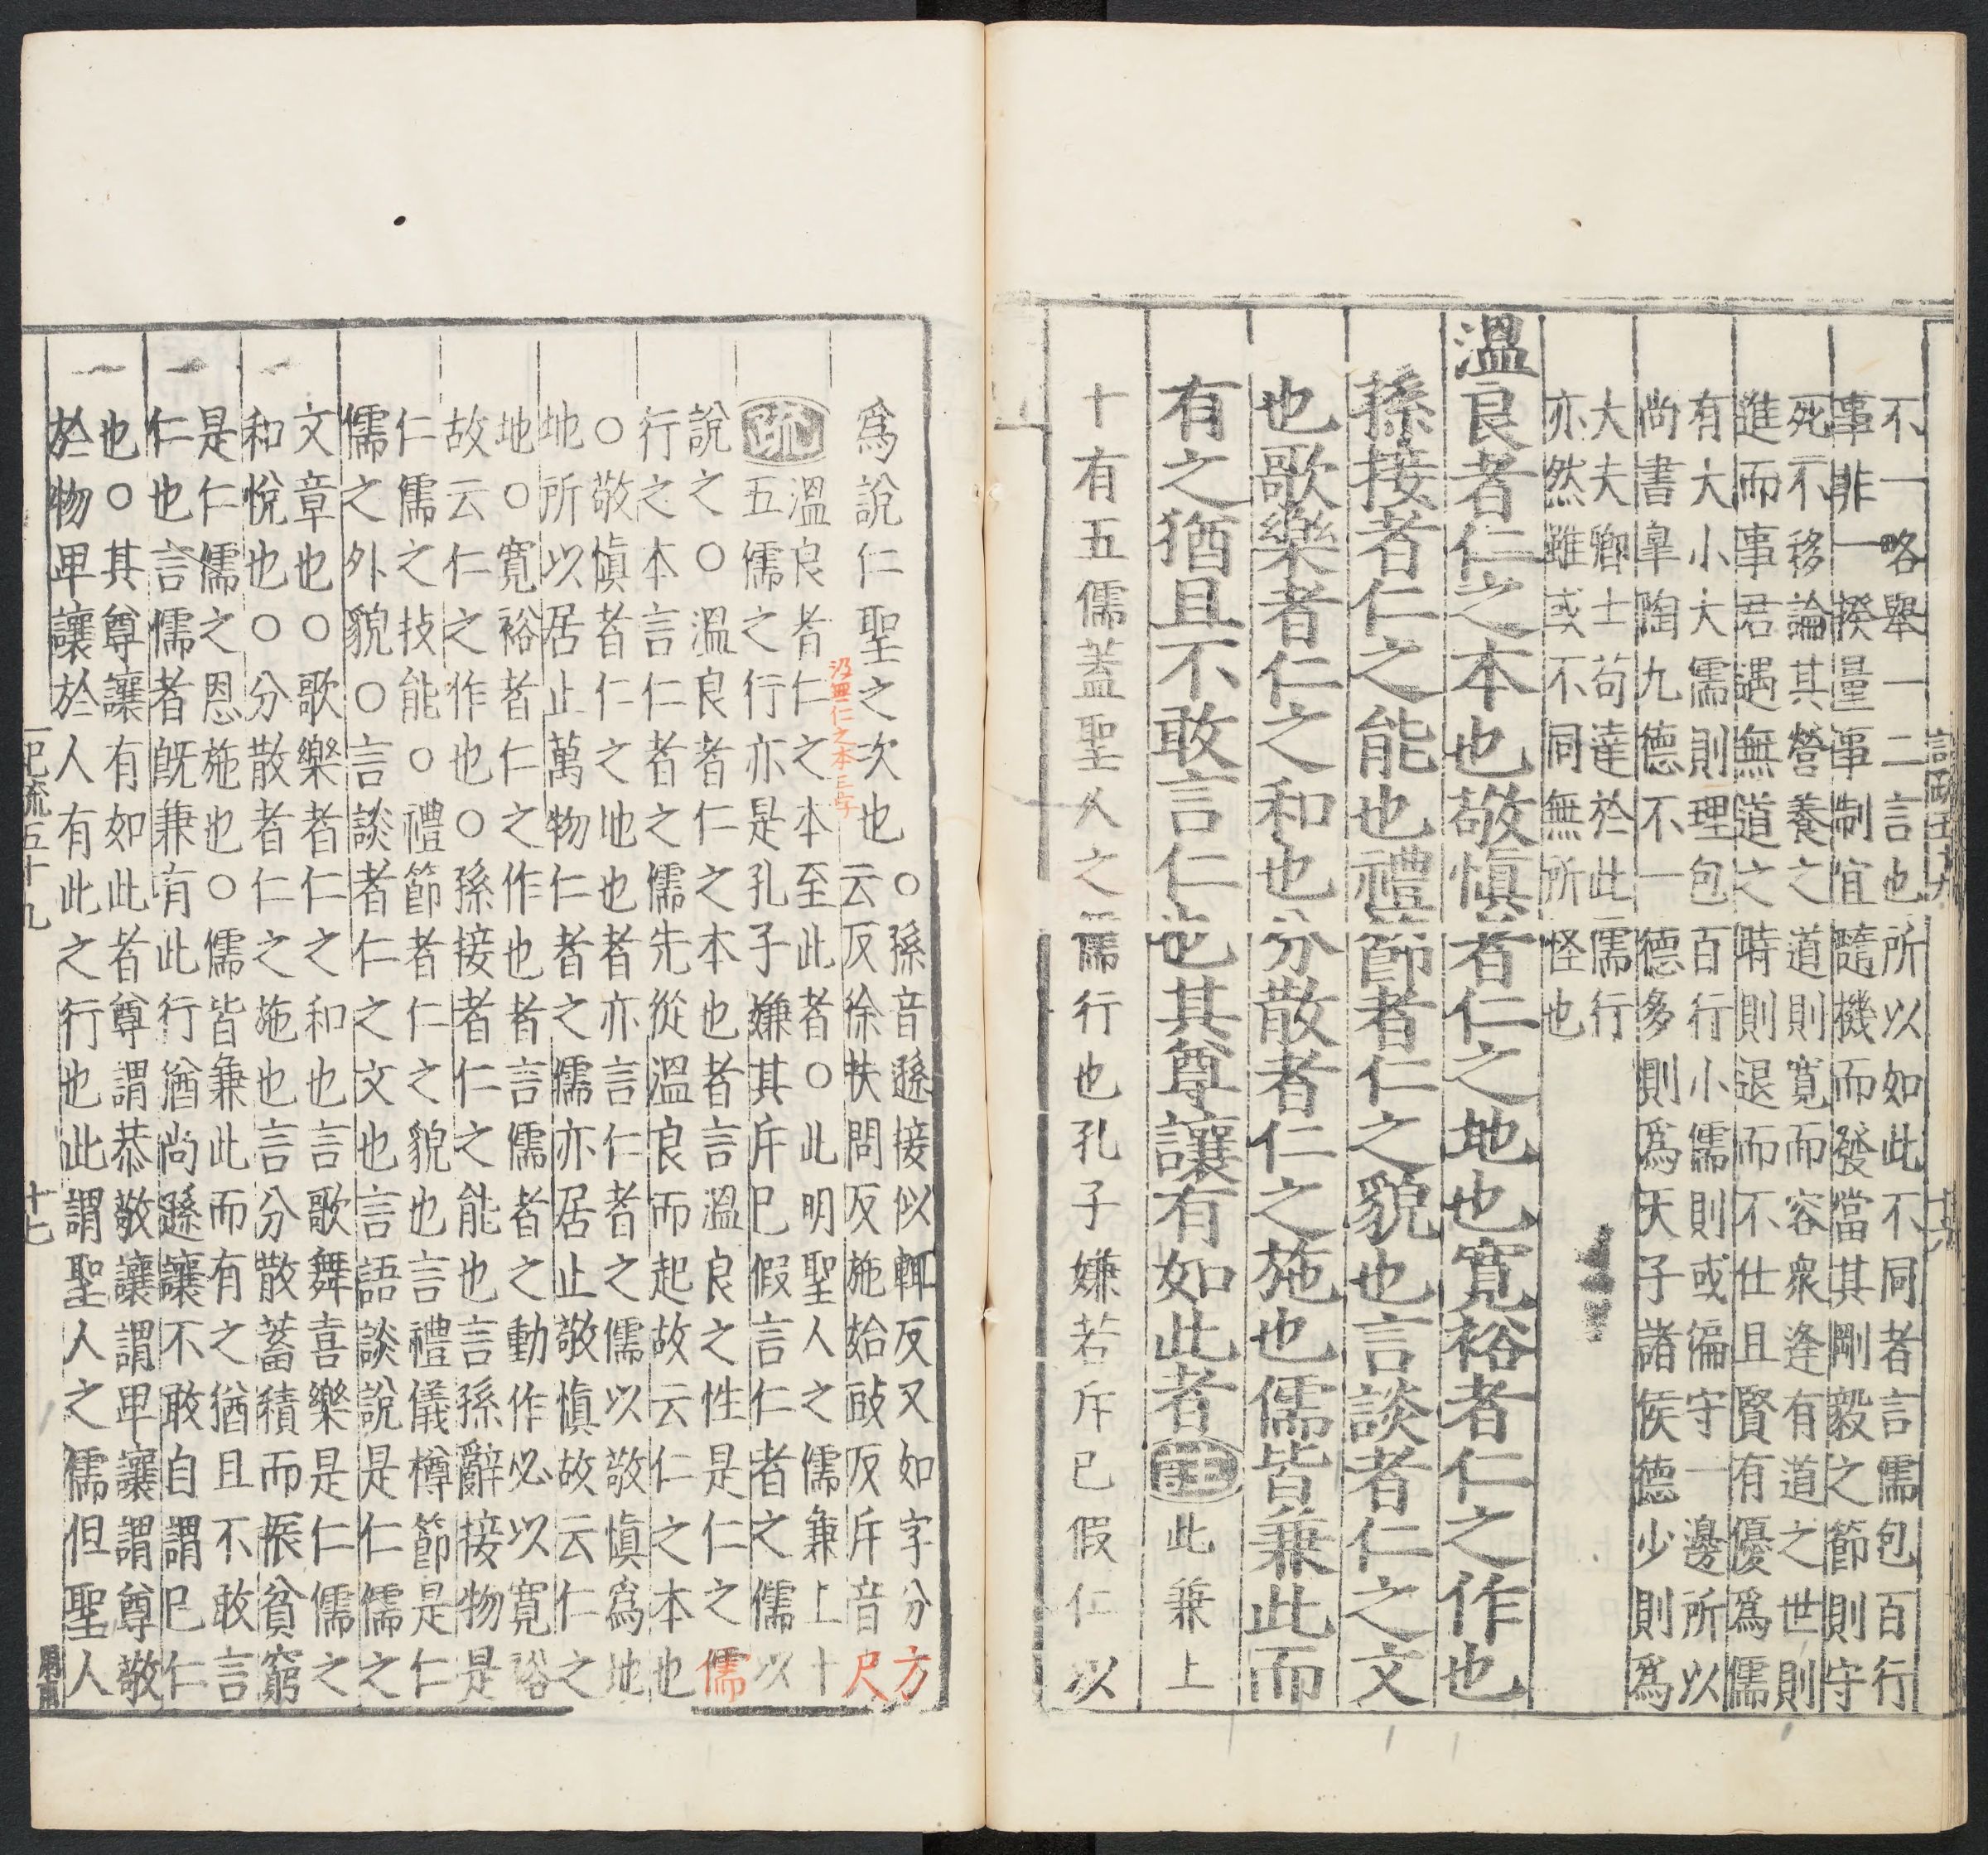 不一略舉一二言也所以如此不同者言儒包百行
事非一揆量事制宜隨機而發當其剛毅之節則守
死不移論其營養之道則寬而容衆逢有道之世則
進而事君遇無道之時則退而不仕且賢有優爲儒
有大小大儒則理包百行小儒則或偏守一邊所以
尚書臯陶九德不一德多則爲天子諸侯德少則爲
大夫卿士苟達於此儒行
亦然雖或不同無所怪也
溫良者仁之本也敬慎者仁之地也寬裕者仁之作也
孫接者仁之能也禮節者仁之貌也言談者仁之文
也歌樂者仁之和也分散者仁之施也儒皆兼此而
有之猶且不敢言仁也其尊讓有如此者註此兼上
十有五儒蓋聖人之儒行也孔子嫌若斥己假仁以
爲說仁聖之次也
○孫音遜接似輒反又如字分方
云反徐扶問反施始豉反斥音尺
疏
溫良者仁之本至此者○此明聖人之儒兼上十
五儒之行亦是孔子嫌其斥已假言仁者之儒以
沿無仁之本三字
說之○溫良者仁之本也者言溫良之性是仁之儒
行之本言仁者之儒先從溫良而起故云仁之本也
○敬慎者仁之地也者亦言仁者之儒以敬慎爲地
地所以居止萬物仁者之儒亦居止敬慎故云仁之
地○寬裕者仁之作也者言儒者之動作必以寬裕
故云仁之作也○孫接者仁之能也言孫辭接物是
仁儒之技能○禮節者仁之貌也言禮儀樽節是仁
儒之外貌○言談者仁之文也言語談說是仁儒之
文章也○歌樂者仁之和也言歌舞喜樂是仁儒之
和悅也○分散者仁之施也言分散蓄積而振貧窮
是仁儒之恩施也○儒皆兼此而有之猶且不敢言
仁也言儒者旣兼有此行猶尚遜讓不敢自謂已仁
也○其尊讓有如此者尊謂恭敬讓謂卑讓謂尊敬
於物卑讓於人有此之行也此謂聖人之儒但聖人
記疏五十九
十七